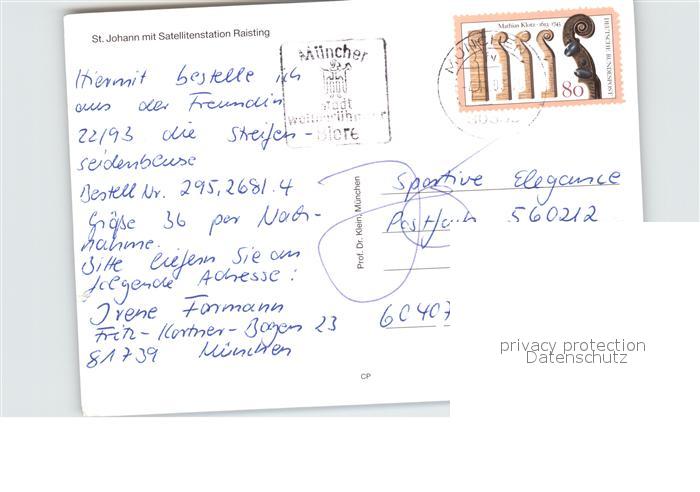 St. Johann mit Satellitenstation Raisting
Hiermit bestelle ich
aus der Freundin
22/93 die Streifen-
seidenbluse
Bestell Nr. 295.2681.4
Größe 36 per Nach-
nahme.
Bitte liefern Sie an
folgende Adresse:
Irene Formann
Fritz-Kortner-Bogen 23
81739 München
Prof. Dr. Klein, München
CP
Münchner
Stadt
weltberühmter
Biere
Mathias Klotz · 1653-1743
80
DEUTSCHE BUNDESPOST
Sportive Elegance
Postfach 560212
60407
privacy protection
Datenschutz